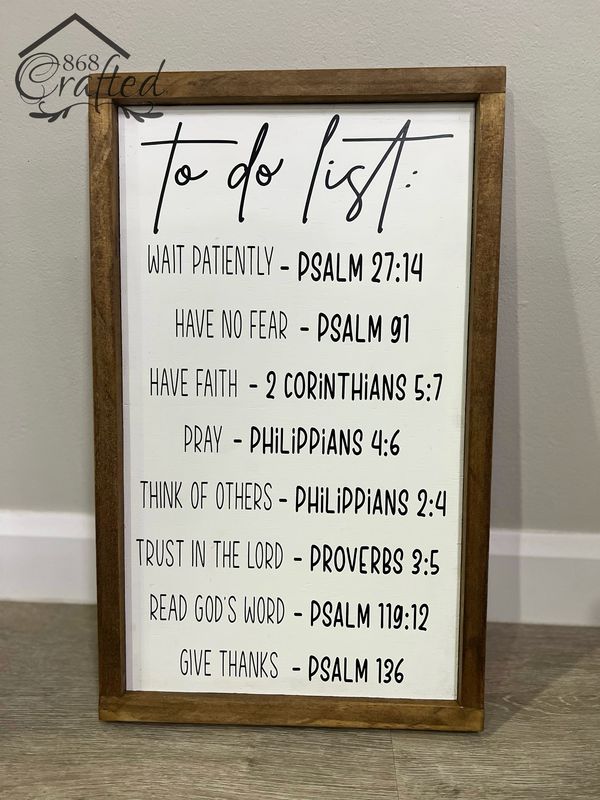 868
Crafted
to do list:
WAIT PATIENTLY - PSALM 27:14
HAVE NO FEAR - PSALM 91
HAVE FAITH - 2 CORiNTHiANS 5:7
PRAY - PHiLiPPiANS 4:6
THINK OF OTHERS - PHiLiPPiANS 2:4
TRUST IN THE LORD - PROVERBS 3:5
READ GOD'S WORD - PSALM 119:12
GIVE THANKS - PSALM 136